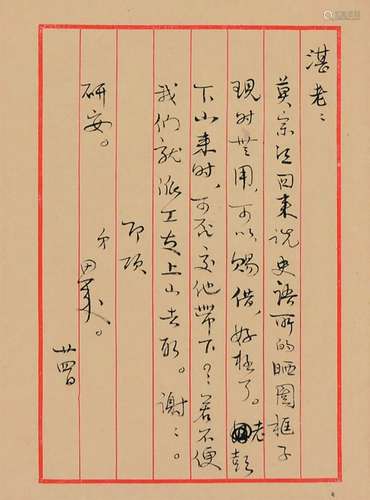 湛老：
莫宗江回来说史语所的晒图框子
现时无用，可以赐借，好极了。老彭
下山来时，可否交他带下？若不便
我们就派工友上山去取。谢谢。
即颂
研安。
弟
廿四日